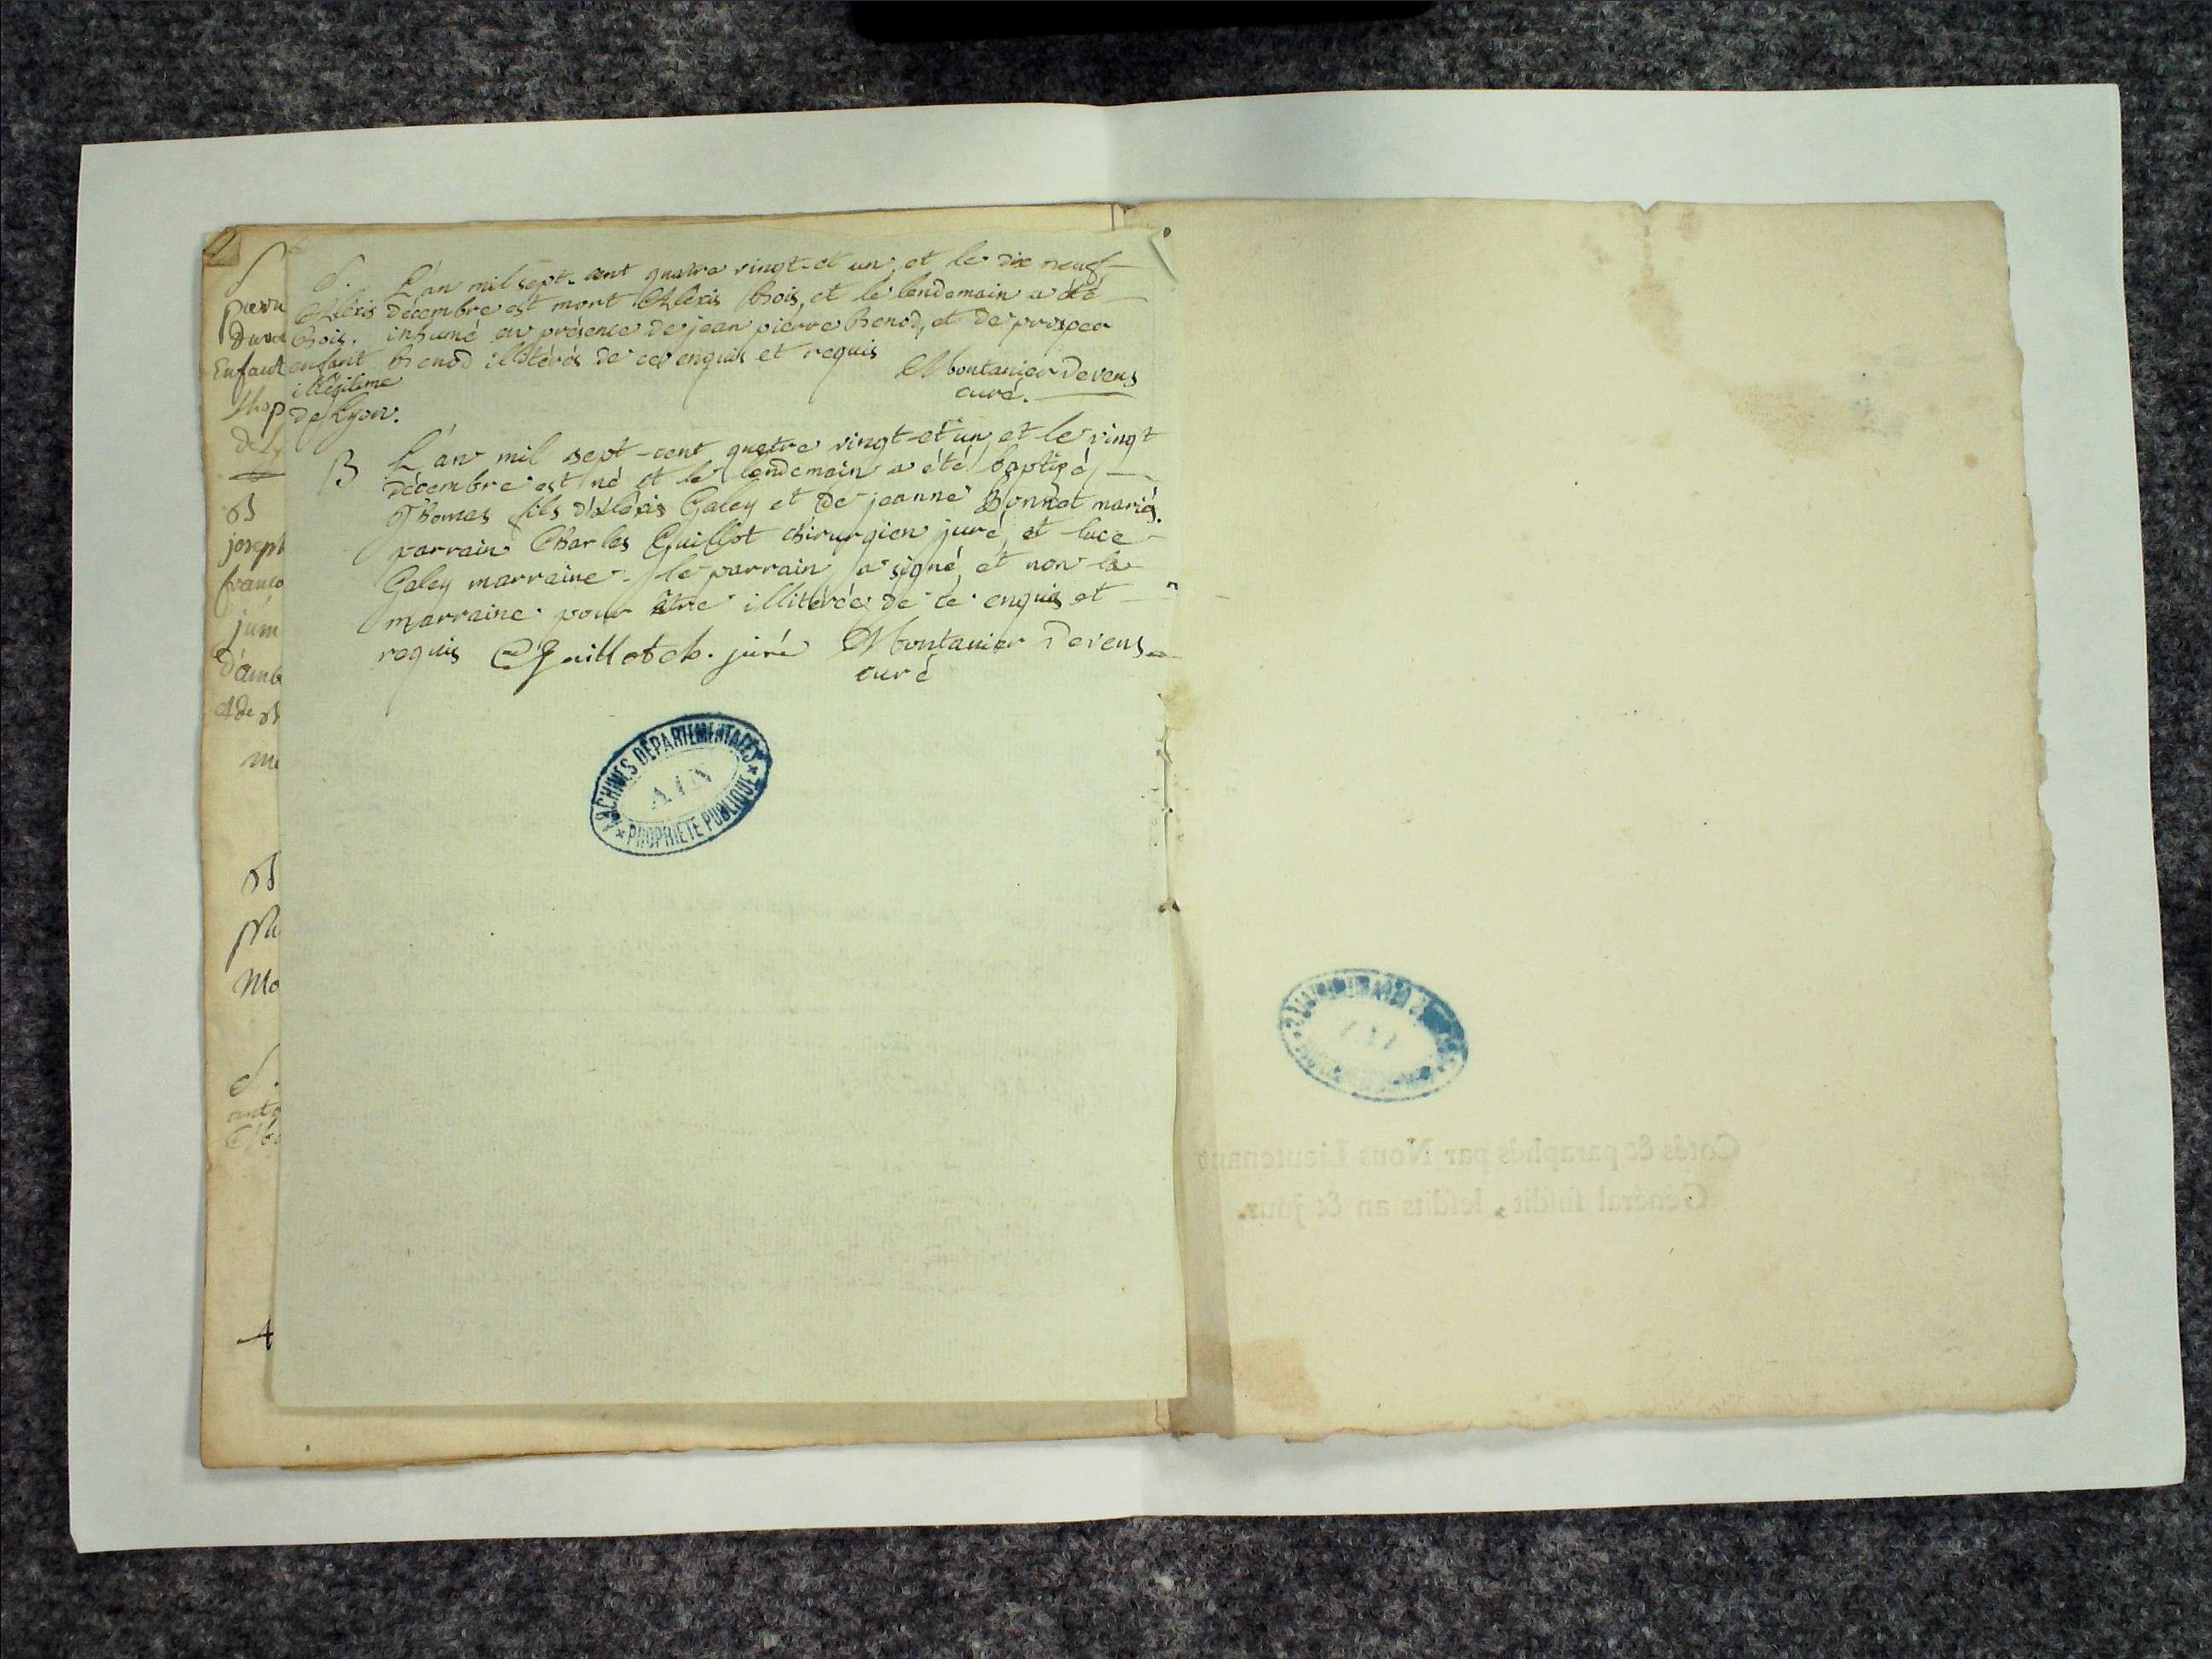 S. L'an mil sept-cent quatre vingt-et un, et le dix neuf
Alexis décembre est mort Alexis Bois, et le lendemain a été
Bois. inhumé en présence de jean pierre Benod, et de prosper
enfant Benod illitérés de ce enquis et requis
illégitime Montanier Devens
de Lyon. curé.
B L'an mil sept-cent quatre vingt-et un, et le vingt
décembre est né et le lendemain a été baptizé
Thomas fils d'Alexis Galey et de jeanne Bonnot mariés.
parrain Charles Guillot chirurgien juré, et luce
Galey marraine. le parrain a signé, et non la
marraine pour être illitérée de ce enquis et
requis CGuillot ch. juré Montanier Devens
curé
ARCHIVES DÉPARTEMENTALES
AIN
PROPRIÉTÉ PUBLIQUE
joseph
franço
d'amb
et de
Mo
Cotés & paraphés par Nous Lieutenant
Général susdit, lesdits an & jour.